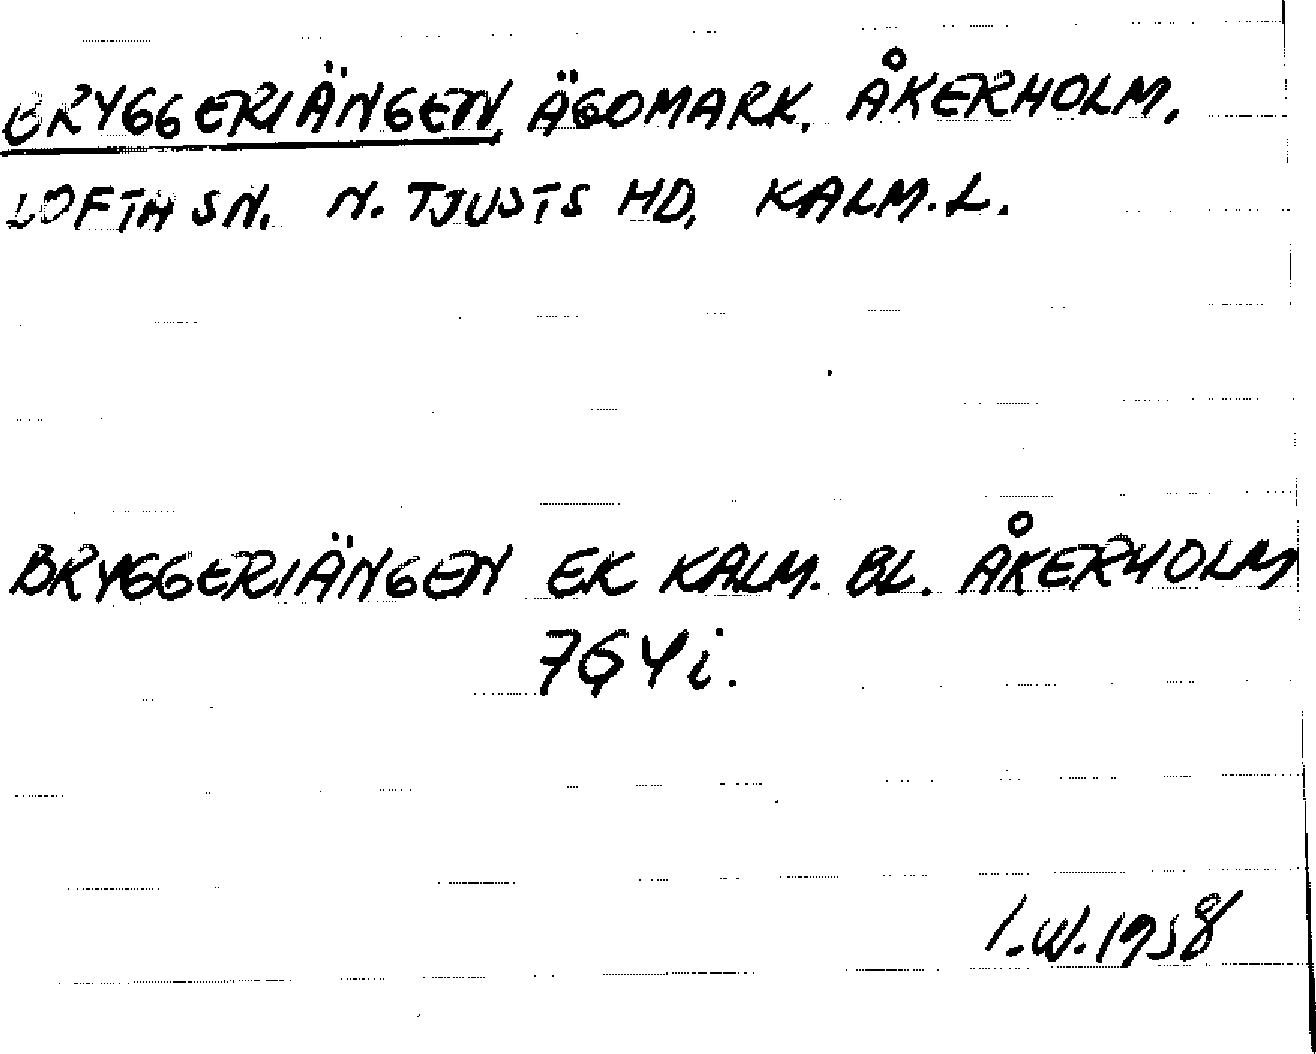 BRYGGERIÄNGEN, ÄGOMARK, ÅKERHOLM,
LOFTA SN. N. TJUSTS HD, KALM. L.
BRYGGERIÄNGEN EK KALM. BL. ÅKERHOLM
7G4i.
I.W. 1958